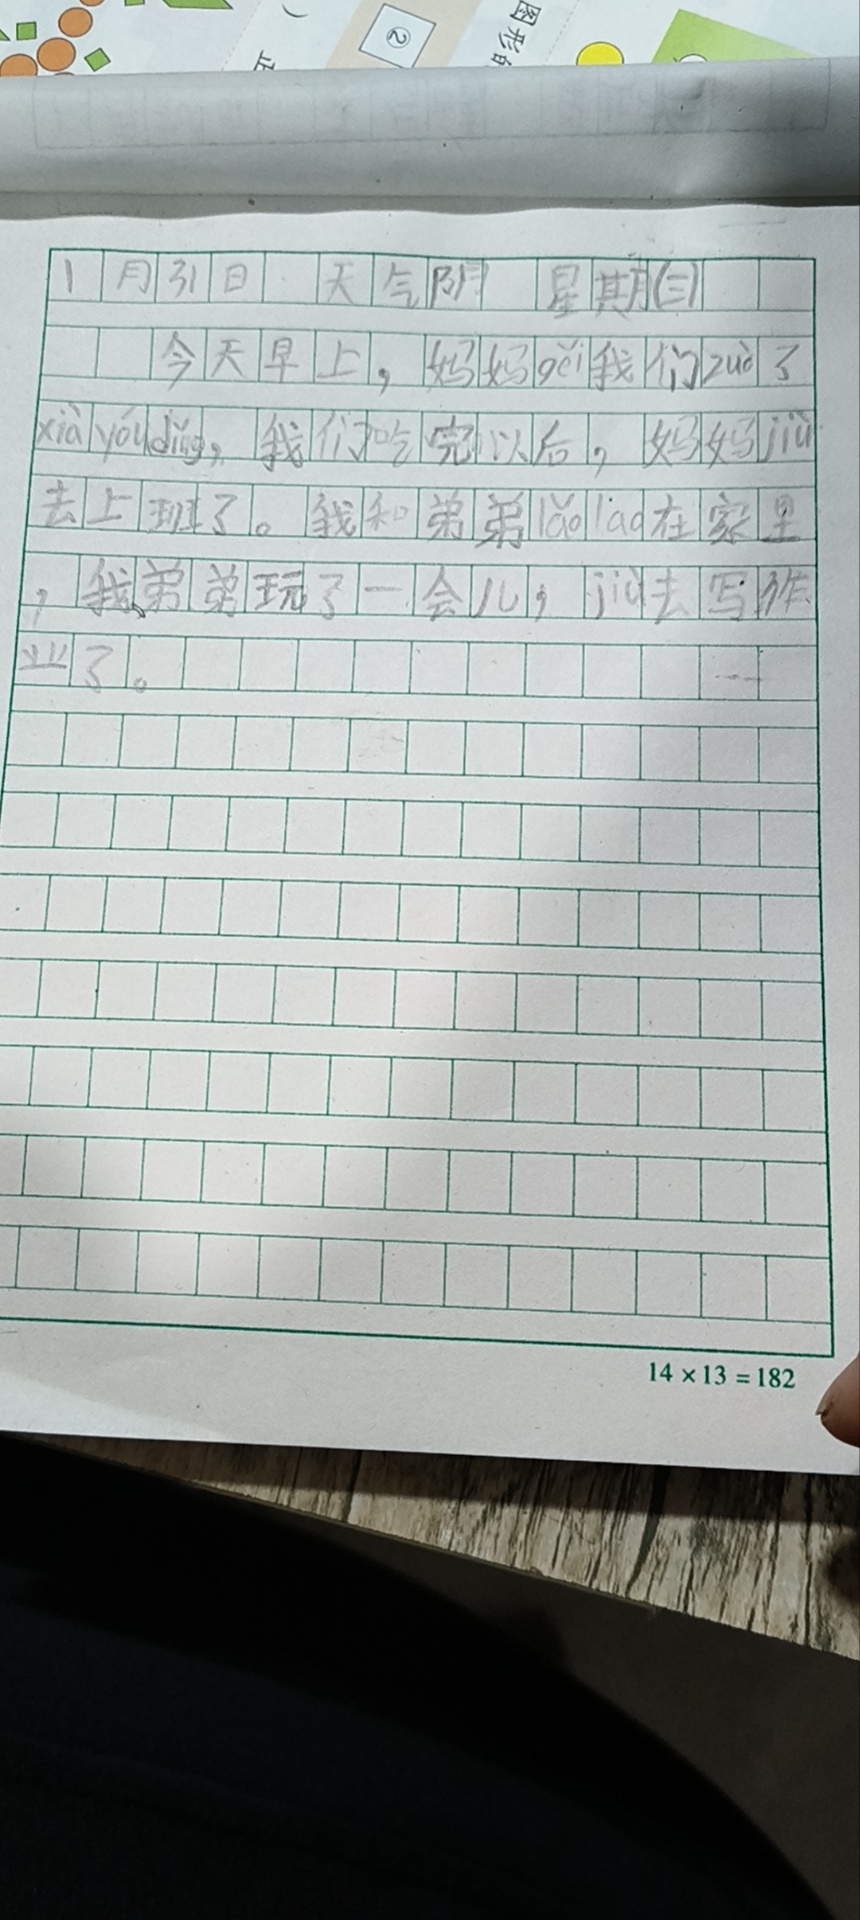 ②
图形的
1月31日 天气阴 星期(三)
今天早上，妈妈gěi我们zuò了
xià yóu dǐng，我们吃完以后，妈妈jiù
去上班了。我和弟弟lǎo lao在家里
，我弟弟玩了一会儿，jiù去写作
业了。
14×13=182